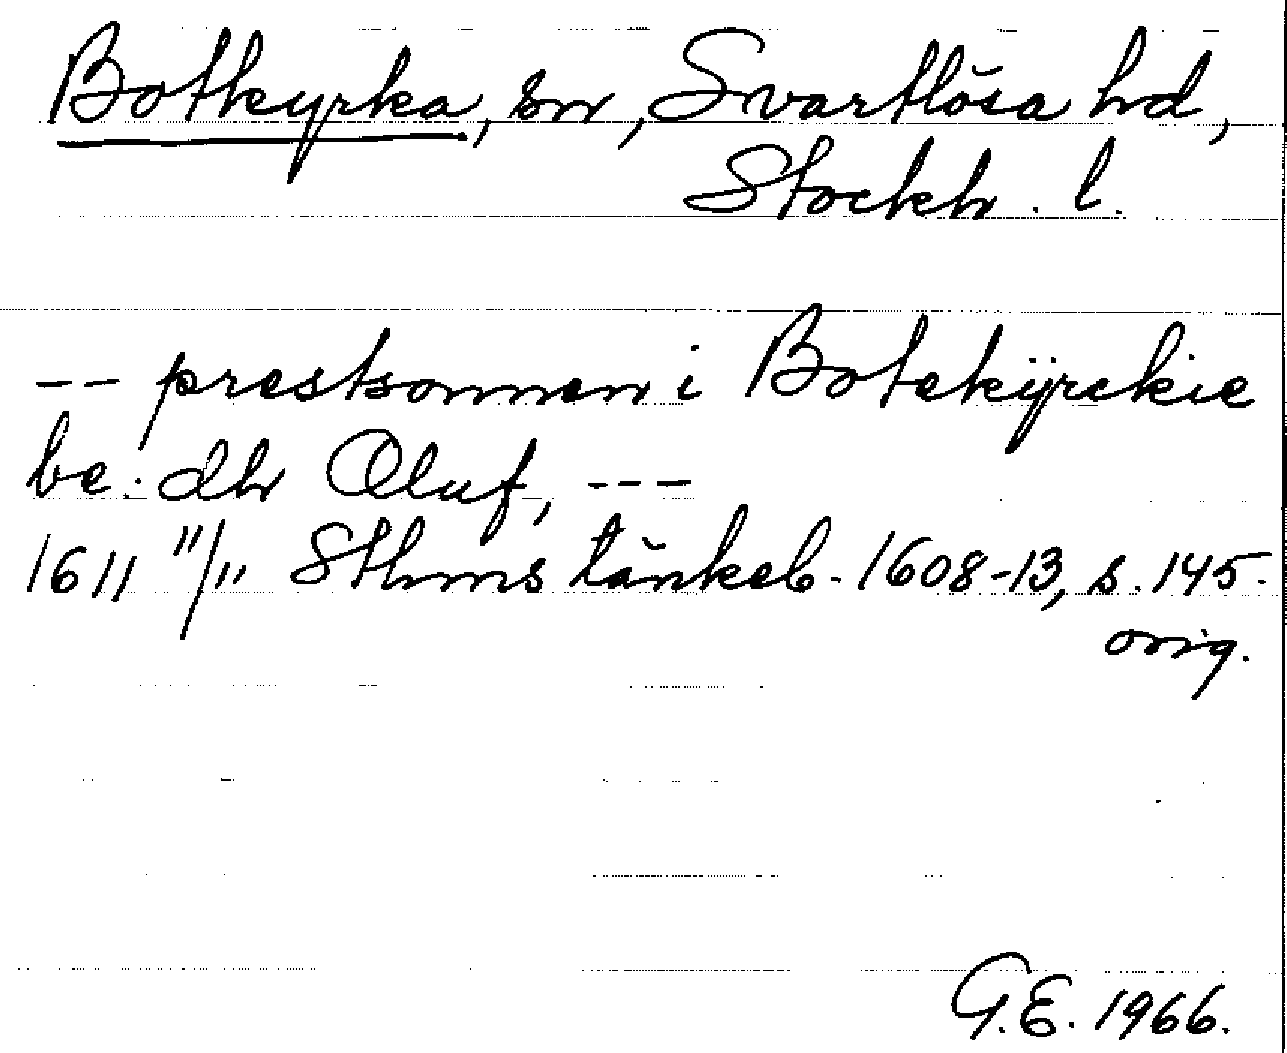 Botkyrka, sn, Svartlösa hd,
Stockh. l.
-- prestsonnen i Botekÿrckie
be: dhr Oluf, ---
1611 11/11 Sthms tänkeb. 1608-13, s. 145.
orig.
G.E. 1966.